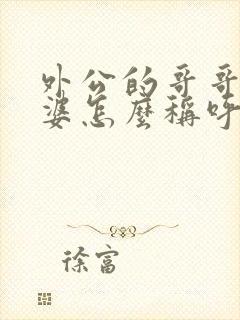 外公的哥哥
婆怎麼稱呼
徐富